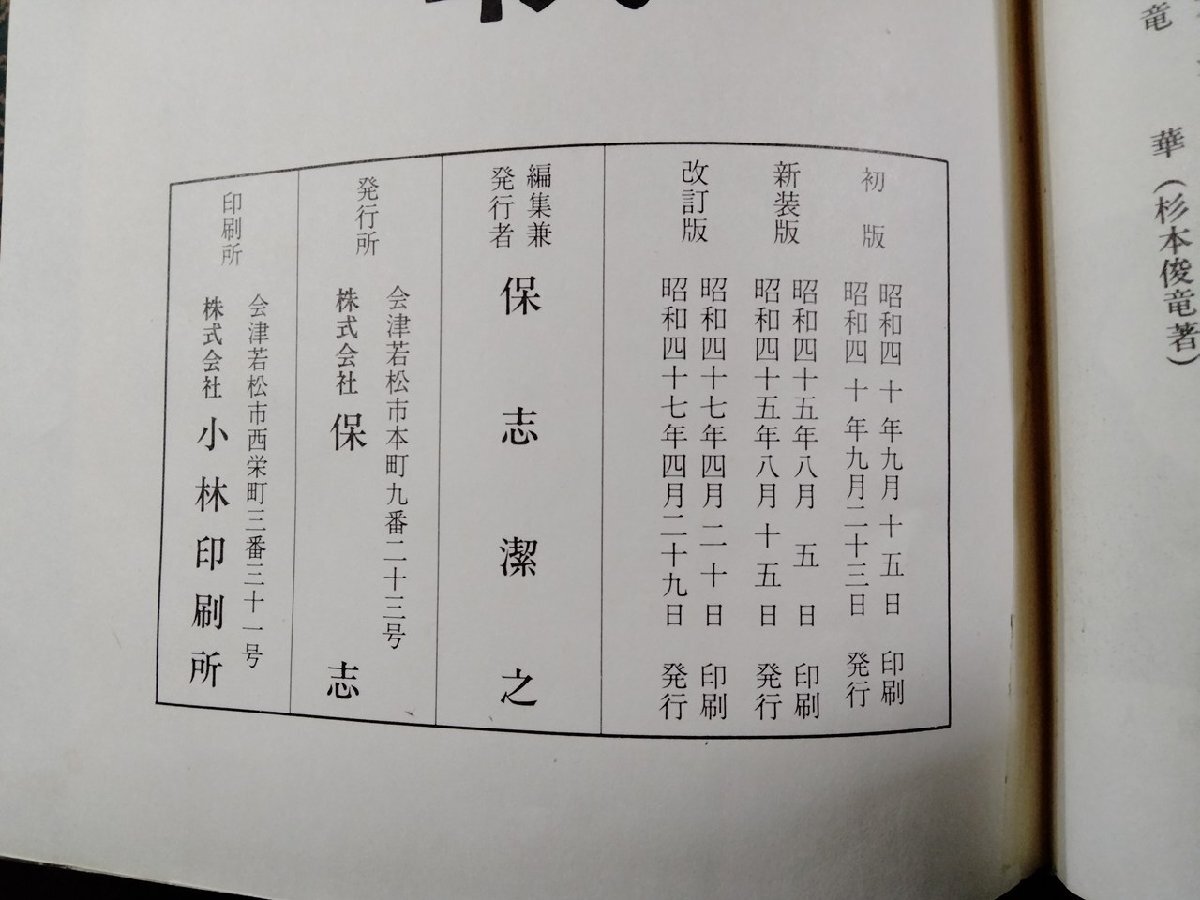 竜
華(杉本俊竜著)
初版
昭和四十年九月十五日 印刷
昭和四十年九月二十三日 発行
新装版
昭和四十五年八月五日 印刷
昭和四十五年八月十五日 発行
改訂版
昭和四十七年四月二十日 印刷
昭和四十七年四月二十九日 発行
編集兼
発行者
保志潔之
発行所
会津若松市本町九番二十三号
株式会社 保志
印刷所
会津若松市西栄町三番三十一号
株式会社 小林印刷所